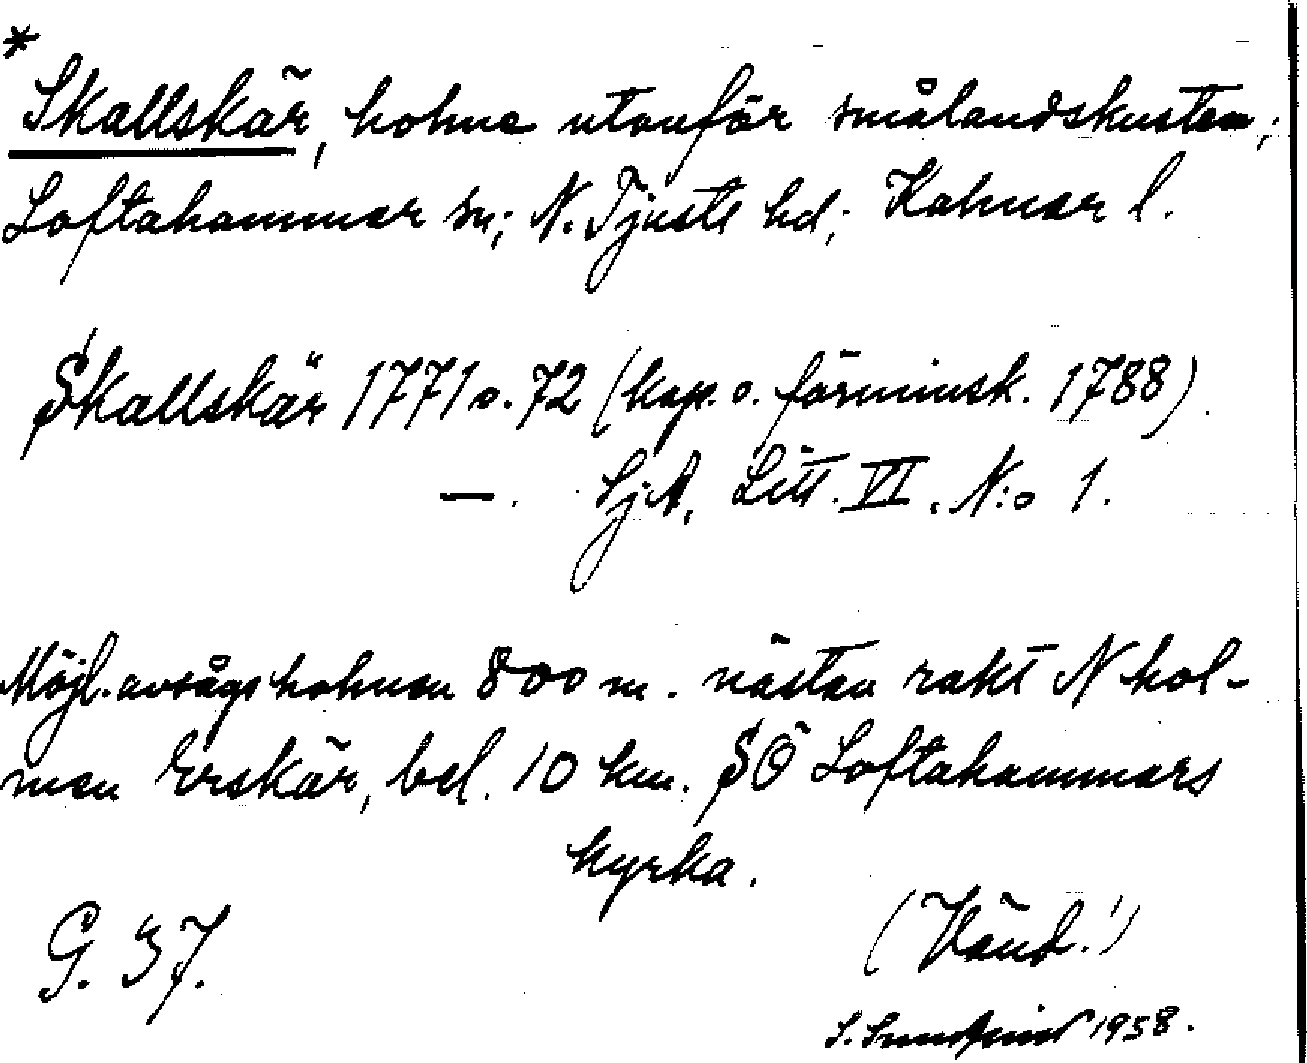 *
Skallskär, holme utanför smålandskusten;
Loftahammar sn; N. Tjusts hd; Kalmar l.
Skallskär 1771 o. 72 (kop. o. förminsk. 1788)
—. SjA, Litt. VI. N:o 1.
Möjl. avsågs holmen 800 m. nästan rakt N hol-
men Erskär, bel. 10 km. SÖ Loftahammars
kyrka.
G. 37. (Vänd!)
S. Sundqvist 1958.